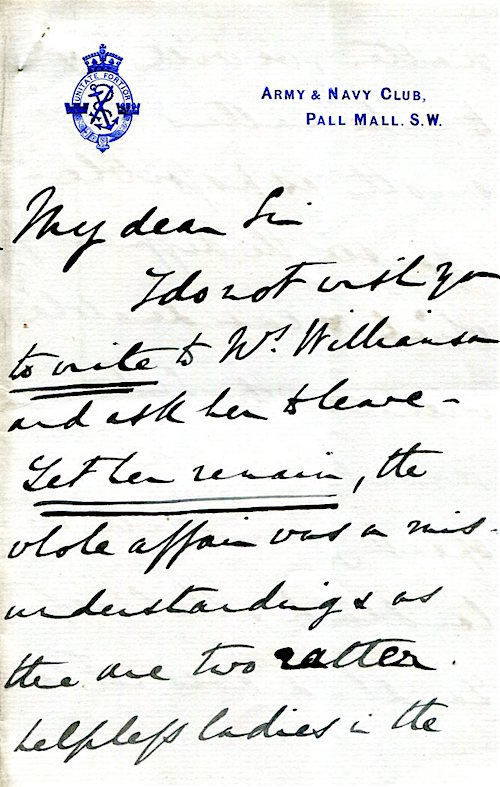 UNITATE FORTIOR
ARMY & NAVY CLUB,
PALL MALL. S.W.
My dear Sir
I do not wish you
to write to Mrs. Williamson
and ask her to leave -
Let her remain, the
whole affair was a mis-
understanding & as
the are two rather
helpless ladies in the